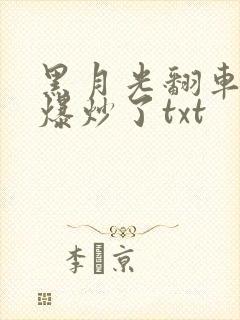 黑月光翻車
爆炒了txt
李 京